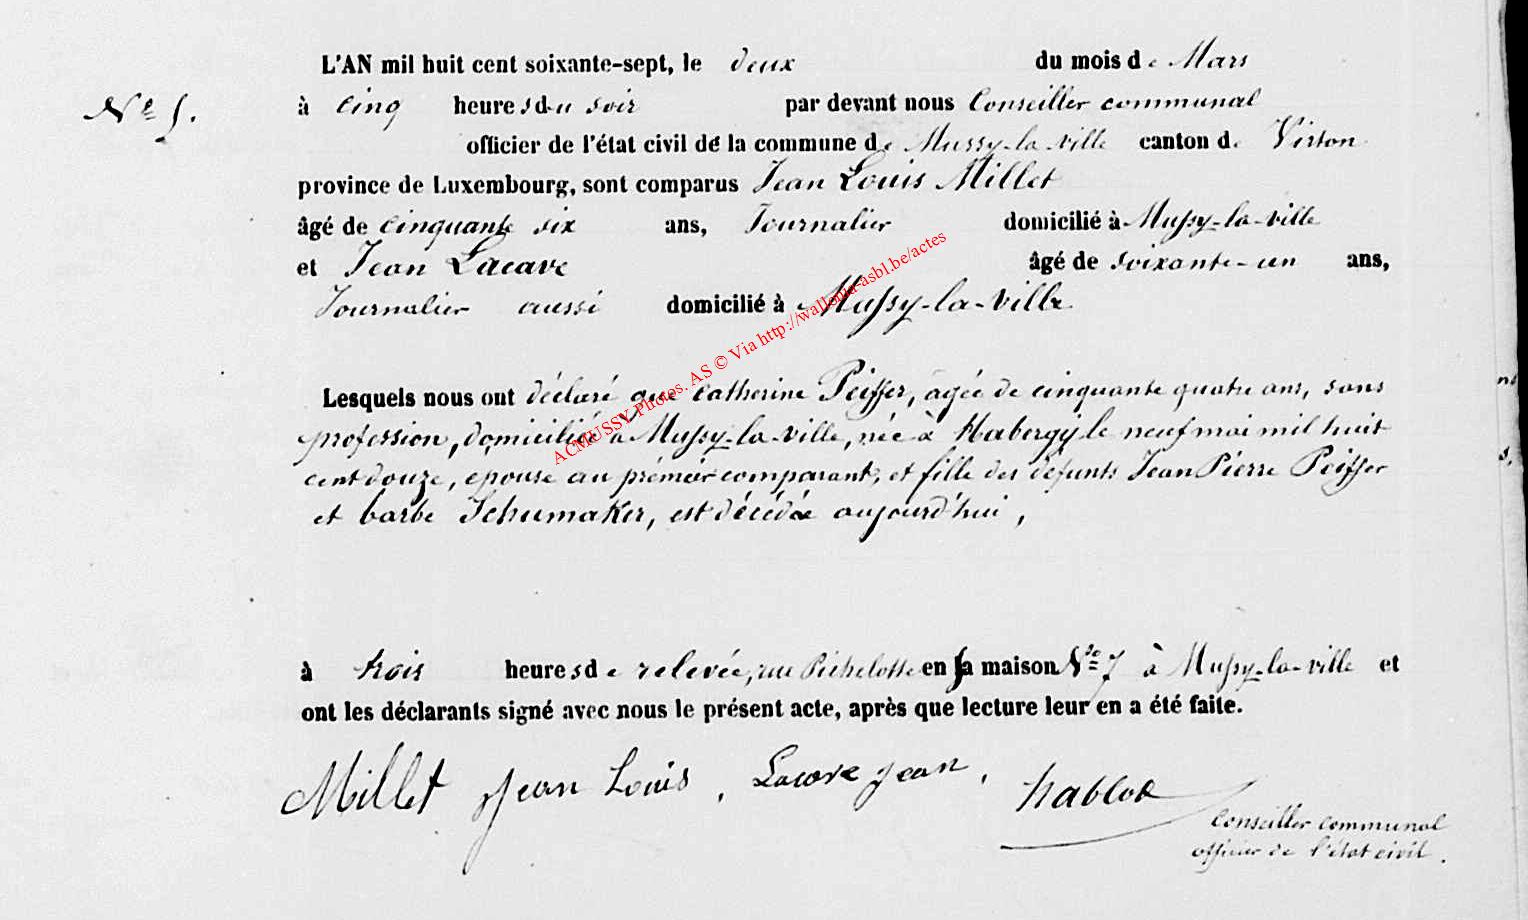 L'AN mil huit cent soixante-sept, le deux du mois de Mars
N° 5.
à cinq heures du soir par devant nous Conseiller communal
officier de l'état civil de la commune de Mussy-la-ville canton de Virton
province de Luxembourg, sont comparus Jean Louis Millet
âgé de cinquante six ans, Journalier domicilié à Mussy-la-ville
et Jean Lacave âgé de soixante-un ans,
Journalier aussi domicilié à Mussy-la-ville
ACMUSSY Photos. AS © Via http://wallonia-asbl.be/actes
Lesquels nous ont déclaré que Catherine Peiffer, agée de cinquante quatre ans, sans
profession, domiciliée à Mussy-la-ville, née à Habergy le neuf mai mil huit
cent douze, epouse au prémier comparant, et fille des défunts Jean Pierre Peiffer
et barbe Schumaker, est décédée aujourd'hui,
à trois heures de relevée, rue Pichelotte en sa maison N° 7 à Mussy-la-ville et
ont les déclarants signé avec nous le présent acte, après que lecture leur en a été faite.
Millet Jean Louis, Lacave Jean, hablot
Conseiller communal
officier de l'état civil.